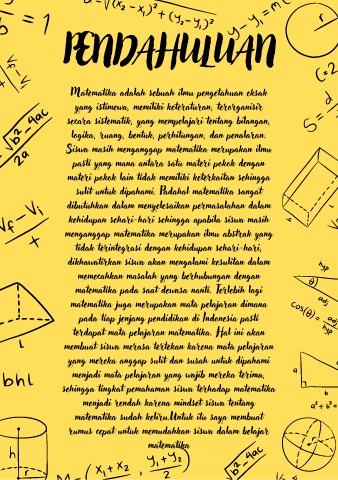 PENDAHULUAN
Matematika adalah sebuah ilmu pengetahuan eksak
yang istimewa, memiliki keteraturan, terorganisir
secara sistematik, yang mempelajari tentang bilangan,
logika, ruang, bentuk, perhitungan, dan penalaran.
Siswa masih menganggap matematika merupakan ilmu
pasti yang mana antara satu materi pokok dengan
materi pokok lain tidak memiliki keterkaitan sehingga
sulit untuk dipahami. Padahal matematika sangat
dibutuhkan dalam menyelesaikan permasalahan dalam
kehidupan sehari-hari sehingga apabila siswa masih
menganggap matematika merupakan ilmu abstrak yang
tidak terintegrasi dengan kehidupan sehari-hari,
dikhawatirkan siswa akan mengalami kesulitan dalam
memecahkan masalah yang berhubungan dengan
matematika pada saat dewasa nanti. Terlebih lagi
matematika juga merupakan mata pelajaran dimana
pada tiap jenjang pendidikan di Indonesia pasti
terdapat mata pelajaran matematika. Hal ini akan
membuat siswa merasa tertekan karena mata pelajaran
yang mereka anggap sulit dan susah untuk dipahami
menjadi mata pelajaran yang wajib mereka terima,
sehingga tingkat pemahaman siswa terhadap matematika
menjadi rendah karena mindset siswa tentang
matematika sudah keliru.Untuk itu saya membuat
rumus cepat untuk memudahkan siswa dalam belajar
matematika
b = 1
√(x₂-x₁)²+(y₂-y₁)²
y-y₁=m
r
C=2
S=d
√b²-4ac
2a
Vf-Vi
t
L
bhl
h
r
hyp
adj
θ
cos(θ)=adj
hyp
a
b
a²+b²=
(x₁+x₂, y₁+y₂)
2
b²-4ac